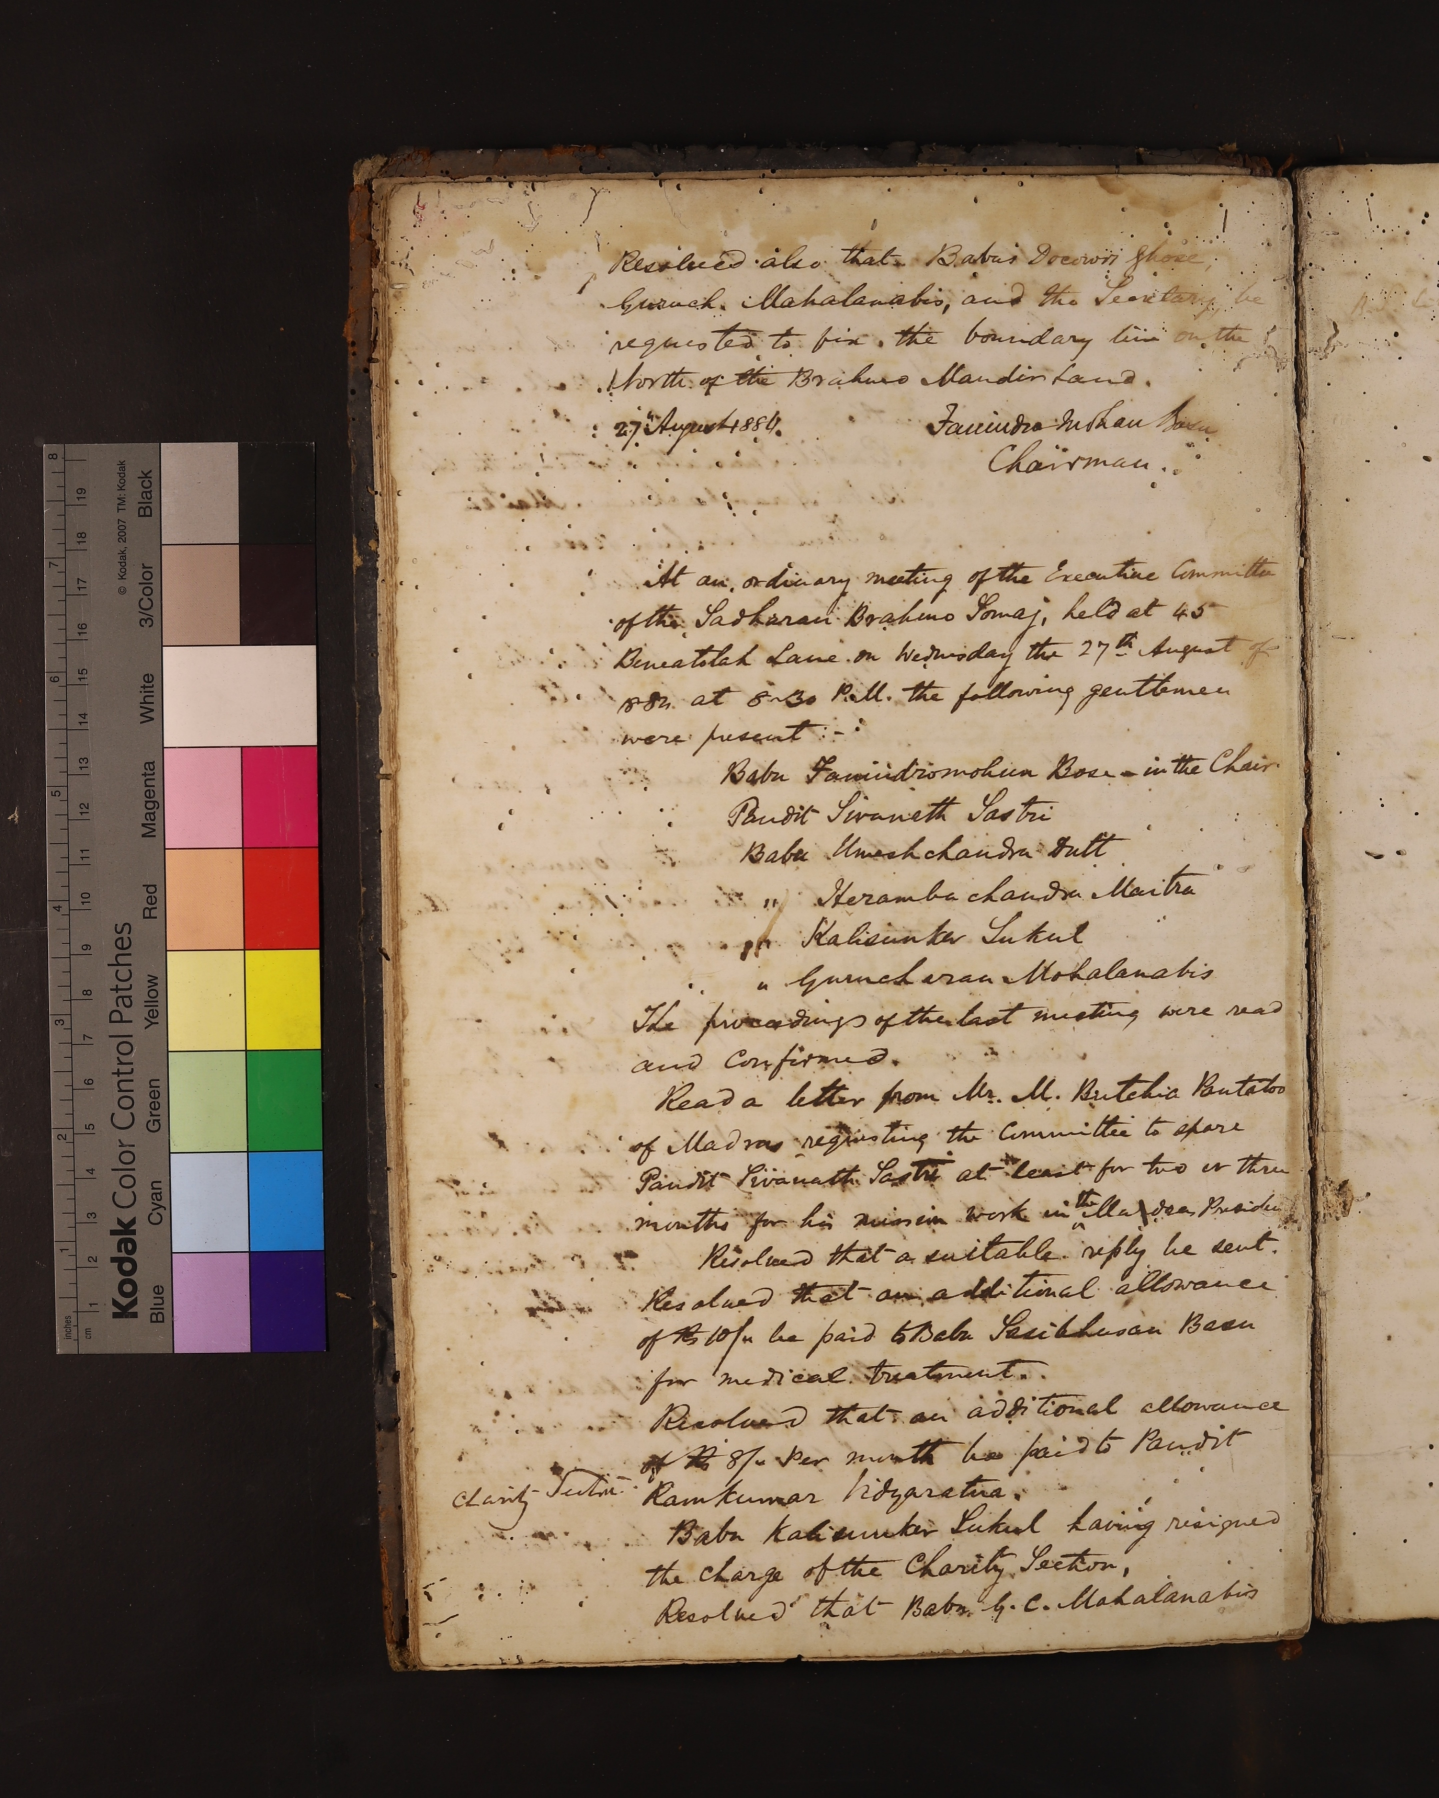 Resolved also that Babus Docowri Ghose,
Guruch. Mahalanabis, and the Secretary be
requested to fix the boundary line on the
North of the Brahmo Mandir Land.
27th August 1884.
Fanindra Mohan Basu
Chairman.
At an ordinary meeting of the Executive Committee
of the Sadharan Brahmo Somaj, held at 45
Beneatolah Lane on Wednesday the 27th August of
884 at 8-30 P.M. the following gentlemen
were present :-
Babu Fanindromohun Bose - in the Chair
Pandit Sivaneth Sastri
Babu Umeshchandra Dutt
" Heramba chandra Maitra
" Kalisunker Sukul
" Gurucharan Mohalanabis
The proceedings of the last meeting were read
and confirmed.
Read a letter from Mr. M. Butchia Pantaloo
of Madras requesting the Committee to spare
Pandit Sivanath Sastri at least for two or three
months for his mission work in the Madras Presiden
Resolved that a suitable reply be sent.
Resolved that an additional allowance
of Rs 10/" be paid to Babu Sasibhusan Basu
for medical treatment.
Resolved that an additional allowance
of Rs 8/" Per month be paid to Pandit
Charity Section
Ramkumar Vidyaratna.
Babu Kalisunker Sukul having resigned
the charge of the Charity Section,
Resolved that Babu G. C. Mahalanabis
Kodak Color Control Patches
© Kodak, 2007 TM: Kodak
Blue
Cyan
Green
Yellow
Red
Magenta
White
3/Color
Black
inches
1
2
3
4
5
6
7
8
cm
1
2
3
4
5
6
7
8
9
10
11
12
13
14
15
16
17
18
19